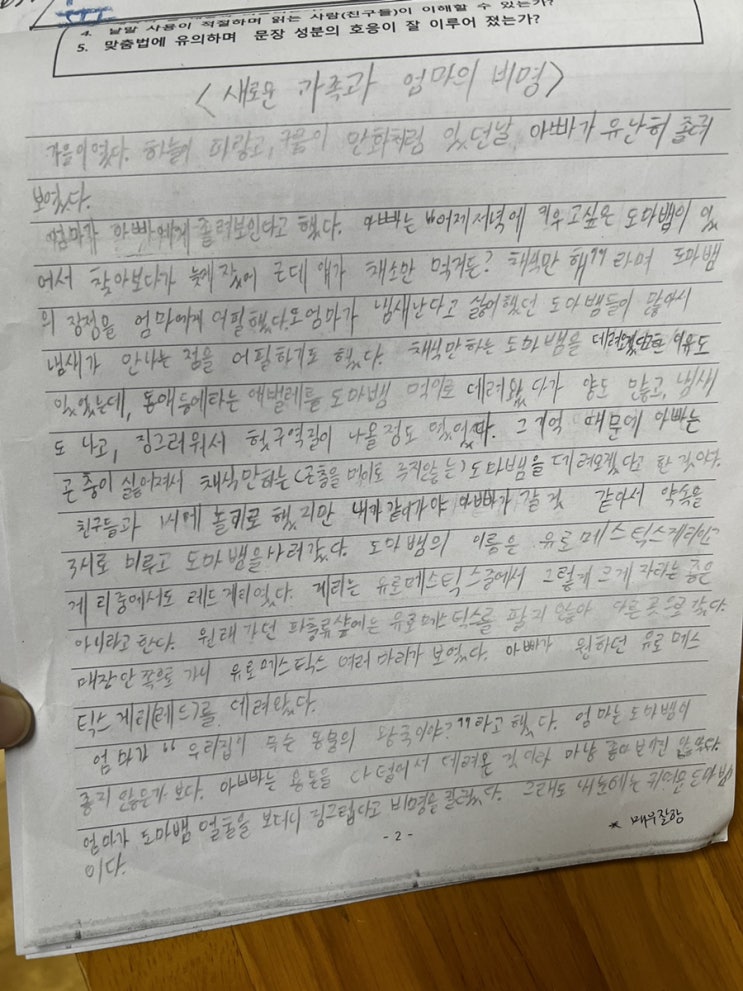 4. 낱말 사용이 적절하며 읽는 사람(친구들)이 이해할 수 있는가?
5. 맞춤법에 유의하며 문장 성분의 호응이 잘 이루어 졌는가?
<새로운 가족과 엄마의 비명>
가을이었다. 하늘이 파랗고, 구름이 만화처럼 있던날, 아빠가 유난히 졸려
보였다.
엄마가 아빠에게 졸려보인다고 했다. 아빠는 "어제저녁에 키우고싶은 도마뱀이 있
어서 찾아보다가 늦게 잤어 근데 얘가 채소만 먹거든? 채식만 해" 라며 도마뱀
의 장점을 엄마에게 어필했다. 또 엄마가 냄새난다고 싫어했던 도마뱀들이 많아서
냄새가 안나는 점을 어필하기도 했다. 채식만하는 도마뱀을 이유도
있었는데, 동애등에라는 애벌레를 도마뱀 먹이로 데려왔다가 양도 많고, 냄새
도 나고, 징그러워서 헛구역질이 나올정도 였었다. 그기억 때문에 아빠는
곤충이 싫어져서 채식만하는(곤충을 먹이로 주지않는) 도마뱀을 데려오겠다고 한 것이다.
친구들과 1시에 놀기로 했지만 내가같이가야 아빠가 갈 것 같아서 약속을
3시로 미루고 도마뱀을사러갔다. 도마뱀의 이름은 유로메스틱스게리인
게리중에서도 레드게리였다. 게리는 유로메스틱스중에서 그렇게 크게 자라는 종은
아니라고 한다. 원래 가던 파충류샵에는 유로메스틱스를 팔지 않아 다른 곳으로 갔다.
매장안 쪽으로 가니 유로메스틱스 여러 마리가 보였다. 아빠가 원하던 유로메스
틱스게리(레드)를 데려왔다.
엄마가 " 우리집이 무슨 동물의 왕국이야?" 라고 했다. 엄마는 도마뱀이
좋지 않은가 보다. 아빠는 용돈을 다 털어서 데려온 것이라 마냥 좋아
엄마가 도마뱀 얼굴을 보더니 징그럽다고 비명을 질렀다. 그래도
이다.
* 매우잘함
- 2 -